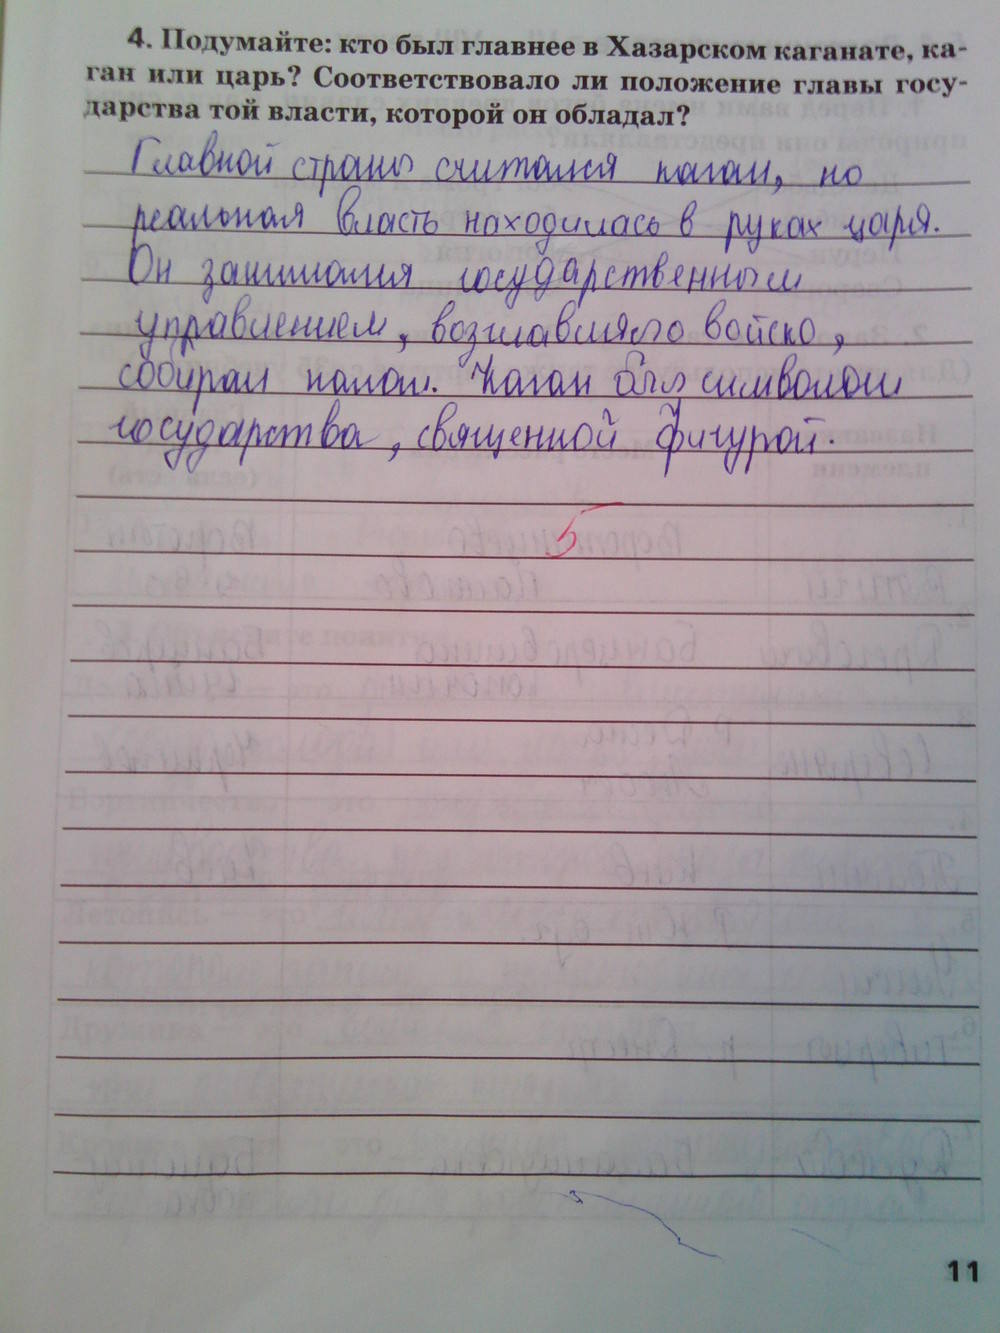 4. Подумайте: кто был главнее в Хазарском каганате, ка-
ган или царь? Соответствовало ли положение главы госу-
дарства той власти, которой он обладал?
Главной страны считался каган, но
реальная власть находилась в руках царя.
Он занимался государственным
управлением, возглавляло войско,
собирал налоги. Каган был символом
государства, священной фигурой.
5
11